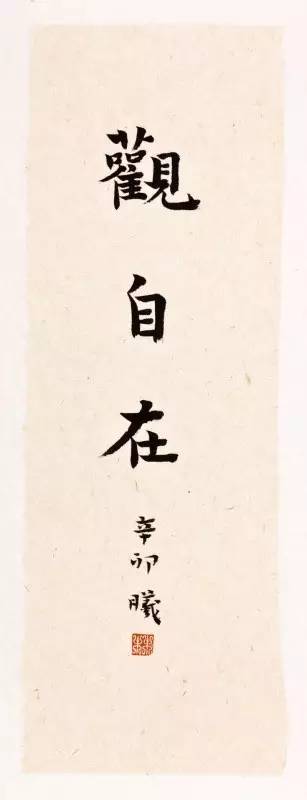 觀自在
辛卯曦